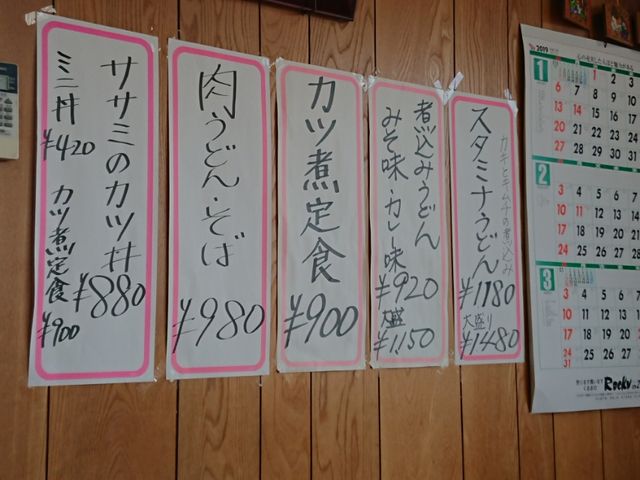 ササミのカツ丼
¥880
ミニ丼
¥420
カツ煮定食
¥900
肉うどん・そば
¥980
カツ煮定食
¥900
煮込みうどん
みそ味・カレー味
¥920
大盛
¥1,150
カキとキムチの煮込み
スタミナうどん
¥1180
大盛り
¥1480
2019
1
1 2 3
6 7 8 9 10
13 14 15 16 17
20 21 22 23 24
27 28 29 30 31
2
3 4 5 6 7
10 11 12 13 14
17 18 19 20 21
24 25 26 27 28
3
3 4 5 6 7
10 11 12 13 14
17 18 19 20 21
24 25 26 27 28
31
Rocky